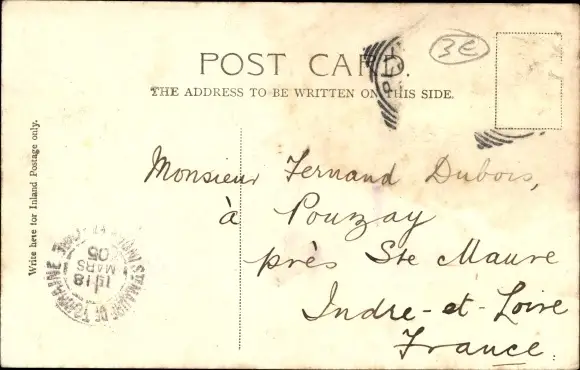 POST CARD.
THE ADDRESS TO BE WRITTEN ON THIS SIDE.
3€
Write here for Inland Postage only.
Monsieur Fernand Dubois,
à Pouzay
près Ste Maure
Indre-et-Loire
France.
STE MAURE DE TOURAINE
18
MARS
05